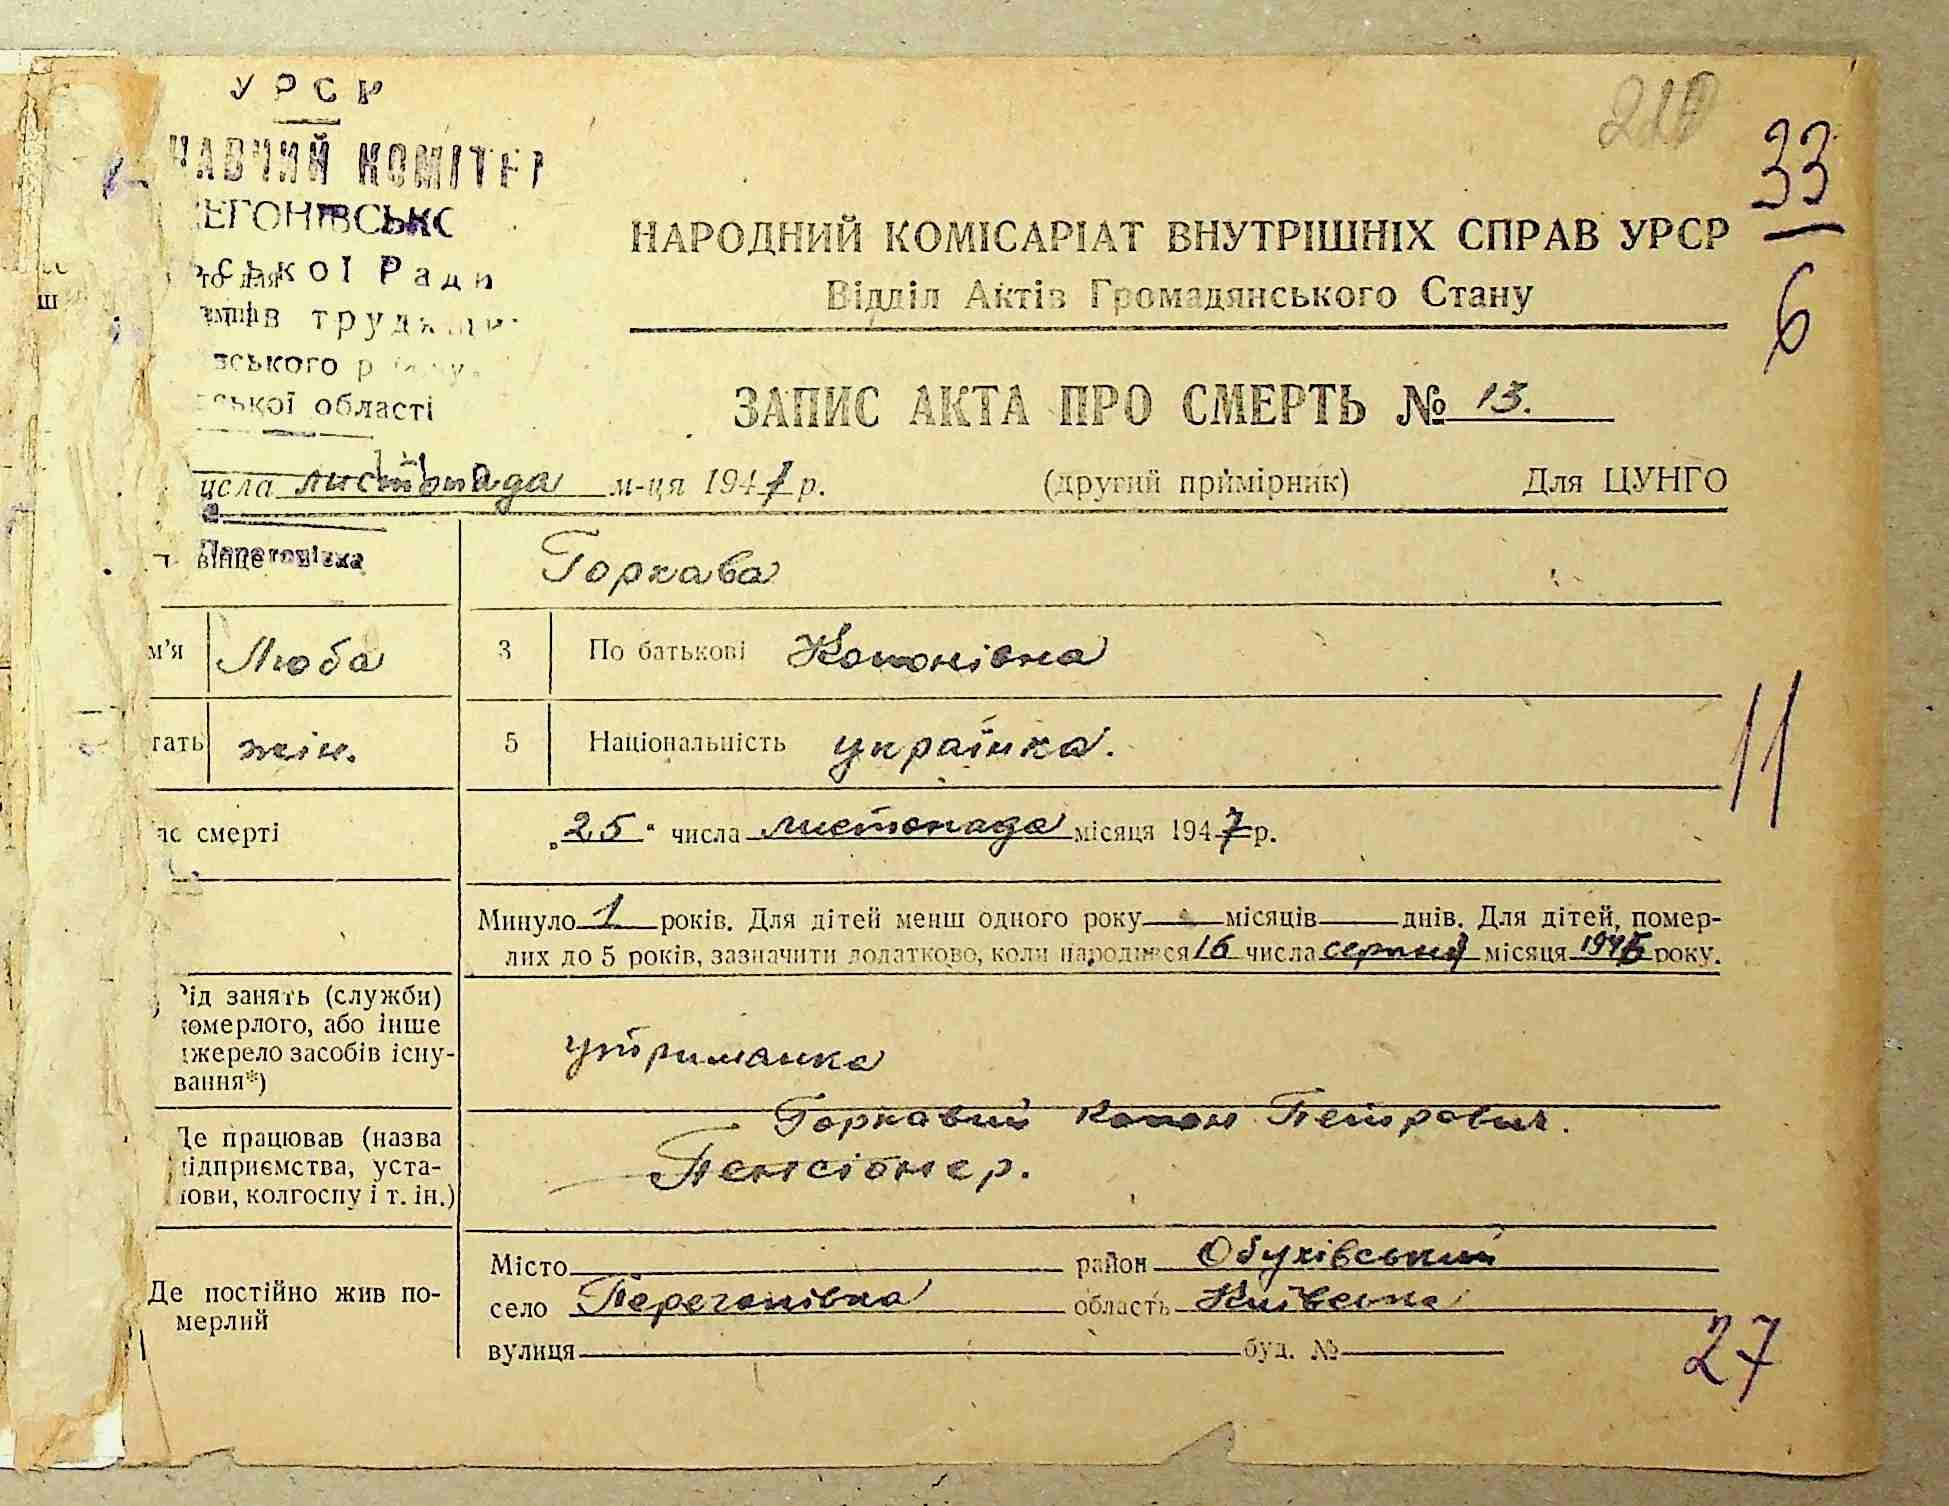 УРСР
ЧАВЧИЙ КОМІТЕТ
ЕГОНІВСЬКО
ської Ради
трудящи
вського р
ської області
210
33
6
НАРОДНИЙ КОМІСАРІАТ ВНУТРІШНІХ СПРАВ УРСР
Відділ Актів Громадянського Стану
ЗАПИС АКТА ПРО СМЕРТЬ № 13.
исла листопада м-ця 1947 р. (другий примірник) Для ЦУНГО
віще Перегонівка Горкава
м'я Люба 3 По батькові Кононівна
тать жін. 5 Національність українка.
11
ас смерті „25“ числа листопада місяця 1947 р.
Минуло 1 років. Для дітей менш одного року місяців днів. Для дітей, помер-
лих до 5 років, зазначити додатково, коли народився 16 числа серпня місяця 1946 року.
ід занять (служби)
омерлого, або інше
жерело засобів існу-
вання*)
утриманка
Горкавий Конон Петрович.
Де працював (назва
підприємства, уста-
нови, колгоспу і т. ін.)
Пенсіонер.
Де постійно жив по-
мерлий
Місто район Обухівський
село Перегонівка область Київська
вулиця буд. №
27